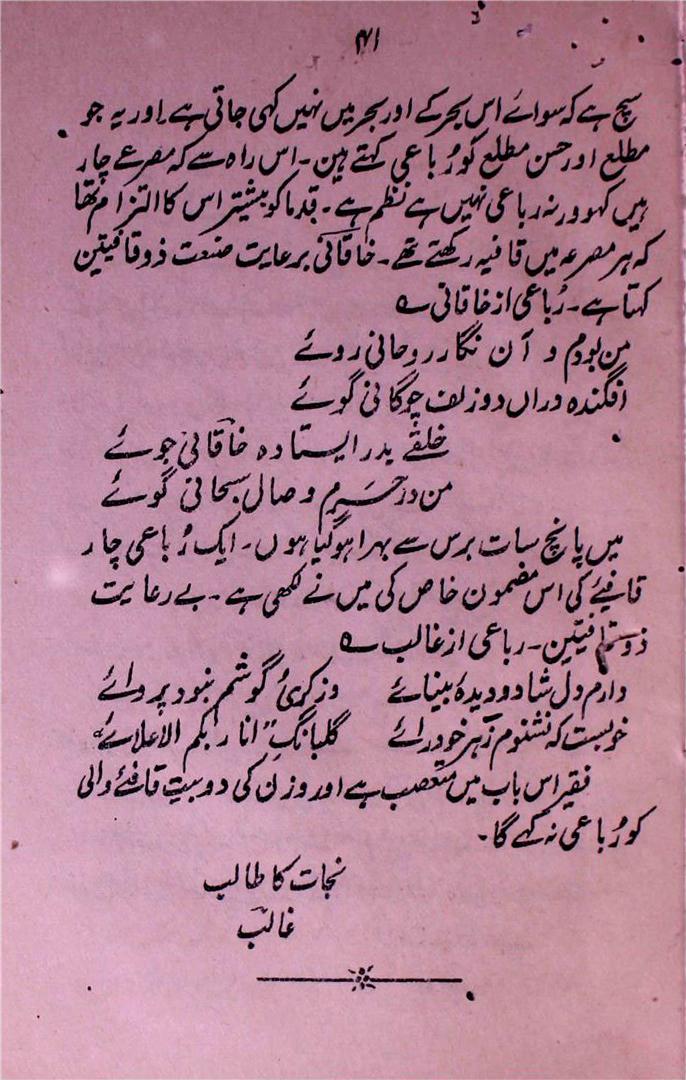 ۴۱
سچ ہے کہ سوائے اس بحر کے اور بحر میں نہیں کہی جاتی ہے۔ اور یہ جو
مطلع اور حسن مطلع کو رُباعی کہتے ہین۔ اس راہ سے کہ مصرعے چار
ہیں کہو ورنہ رباعی نہیں ہے نظم ہے۔ قدما کو بیشتر اس کا التزام تھا
کہ ہر مصرعہ میں قافیہ رکھتے تھے۔ خاقانی برعایت صنعت ذوقافیتین
کہتا ہے۔ رُباعی از خاقانی ؎
من بودم و آن نگار روحانی روئے
افگندہ دراں دو زلف چوگانی گوئے
خلقے بدر ایستادہ خاقانی جوئے
من در حرمِ وصال سبحانی گوئے
میں پانچ سات برس سے بہرا ہو گیا ہوں۔ ایک رُباعی چار
قافیئے کی اس مضمون خاص کی میں نے لکھی ہے۔ بے رعایت
ذوقافیتین۔ رباعی از غالب ؎
دارم دل شاد و دیدۂ بینائے وزکریٔ گوشم نبود پروائے
خوبست کہ نشنوم زہر خود رائے گلبانگِ "انا ربکم الاعلائے"
فقیر اس باب میں متعصب ہے اور وزن کی دو بیت قافئے والی
کو رُباعی نہ کہے گا۔
نجات کا طالب
غالبؔ